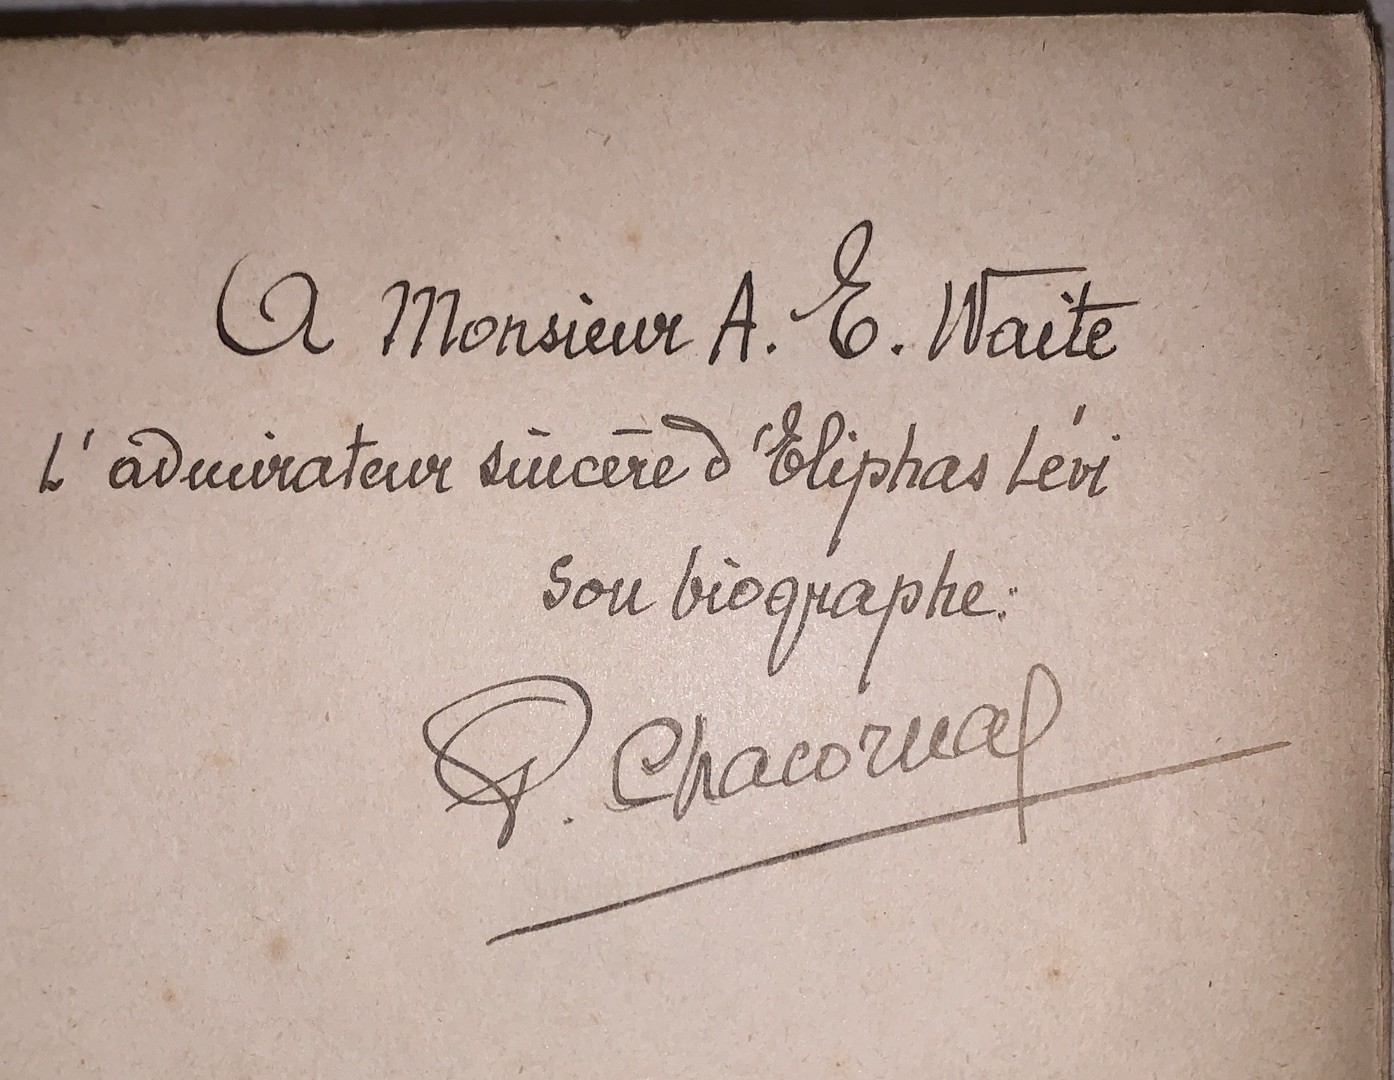 A Monsieur A. E. Waite
L'admirateur sincère d'Eliphas Lévi
Son biographe:
P. Chacornac